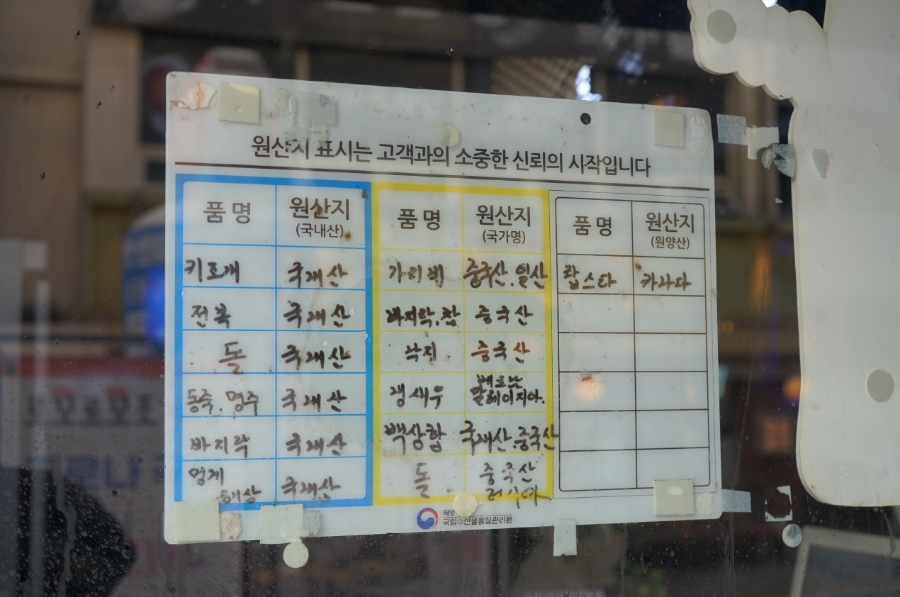 원산지 표시는 고객과의 소중한 신뢰의 시작입니다
품명 원산지 (국내산) 품명 원산지 (국가명) 품명 원산지 (원양산)
키로개 국내산 가리비 중국산.일산 랍스다 카나다
전복 국내산 바지락.참 중국산
돌 국내산 낙지 중국산
동죽.명주 국내산 갱새우 말레이지아.
바지락 국내산 백상합 국내산.중국산
멍게 해삼 국내산 돌 중국산 러시아
국립수산물품질관리원